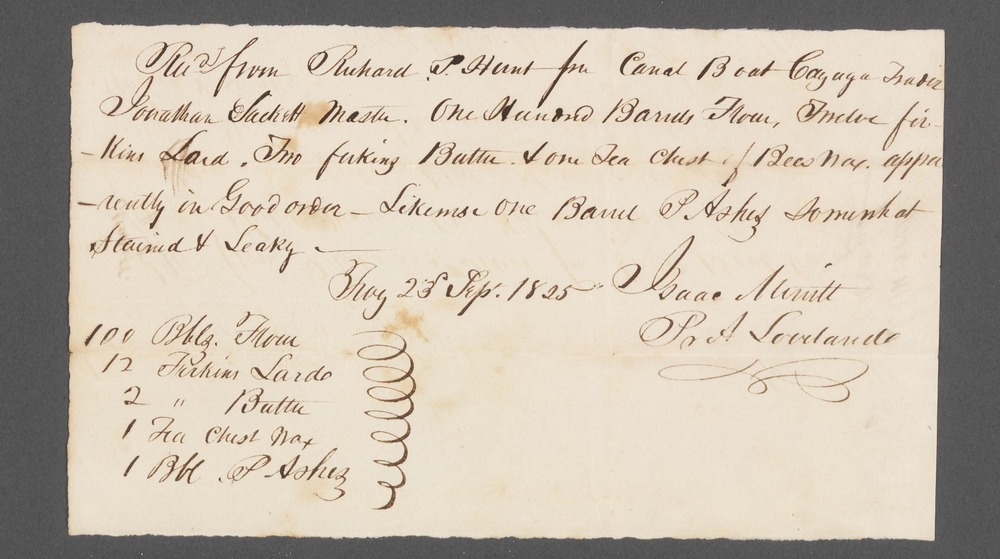 Recd from Richard P. Hunt for Canal Boat Cayuga Trader
Jonathan Sackett Master. One Hundred Barrels Flour, Twelve fir-
-kins Lard. Two firkins Butter & one Tea Chest of Bees Wax. appa
-rently in Good order - Likewise One Barrel P Ashes somewhat
Stained & Leaky -
Troy 23d Sept. 1825 Isaac Merritt
Pr A Loveland
100 Bbls. Flour
12 Firkins Lard
2 " Butter
1 Tea Chest Wax
1 Bbl. P Ashes